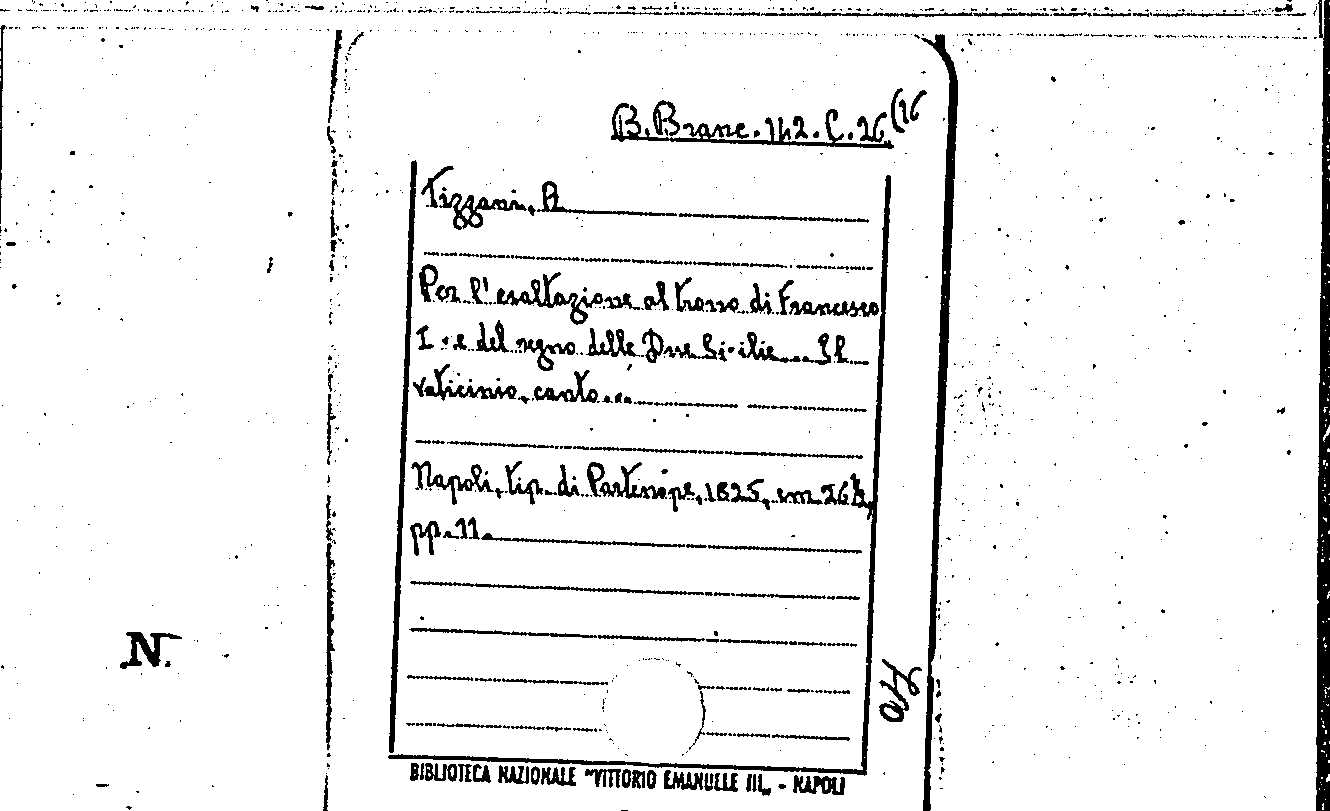 B. Branc. 142. C. 26(16
Tizzani, A
Per l'esaltazione al trono di Francesco
I. e del regno delle Due Sicilie... Il
vaticinio, canto...
Napoli, tip. di Partenope, 1825, cm. 26½,
pp. 11.
N.
BIBLIOTECA NAZIONALE "VITTORIO EMANUELE III„ - NAPOLI